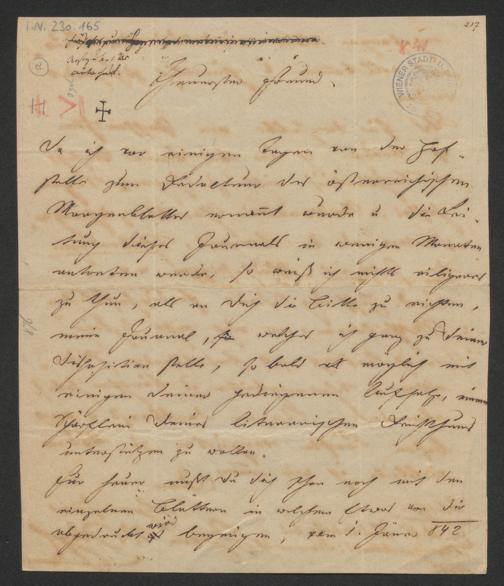 I.N. 230.165
217
Theuerster Freund.
Da ich vor einigen Tagen von der Hof-
stelle zum Redacteur des österreichischen
Morgenblattes ernannt wurde u die Lei-
tung dieses Journals in wenigen Monaten
antreten werde, so weiß ich nichts eiligeres
zu thun, als an Dich die Bitte zu richten,
mein Journal, welches ich ganz zu Deiner
Disposition stelle, so bald es möglich mit
einigen Deiner gediegenen Aufsätze, einem
Schärflein Deines literarischen Reichthums
unterstützen zu wollen.
Für heuer mußt Du Dich schon noch mit den
einzelnen Blättern in welchen etwas von Dir
abgedruckt wird begnügen, vom 1. Jänner 842